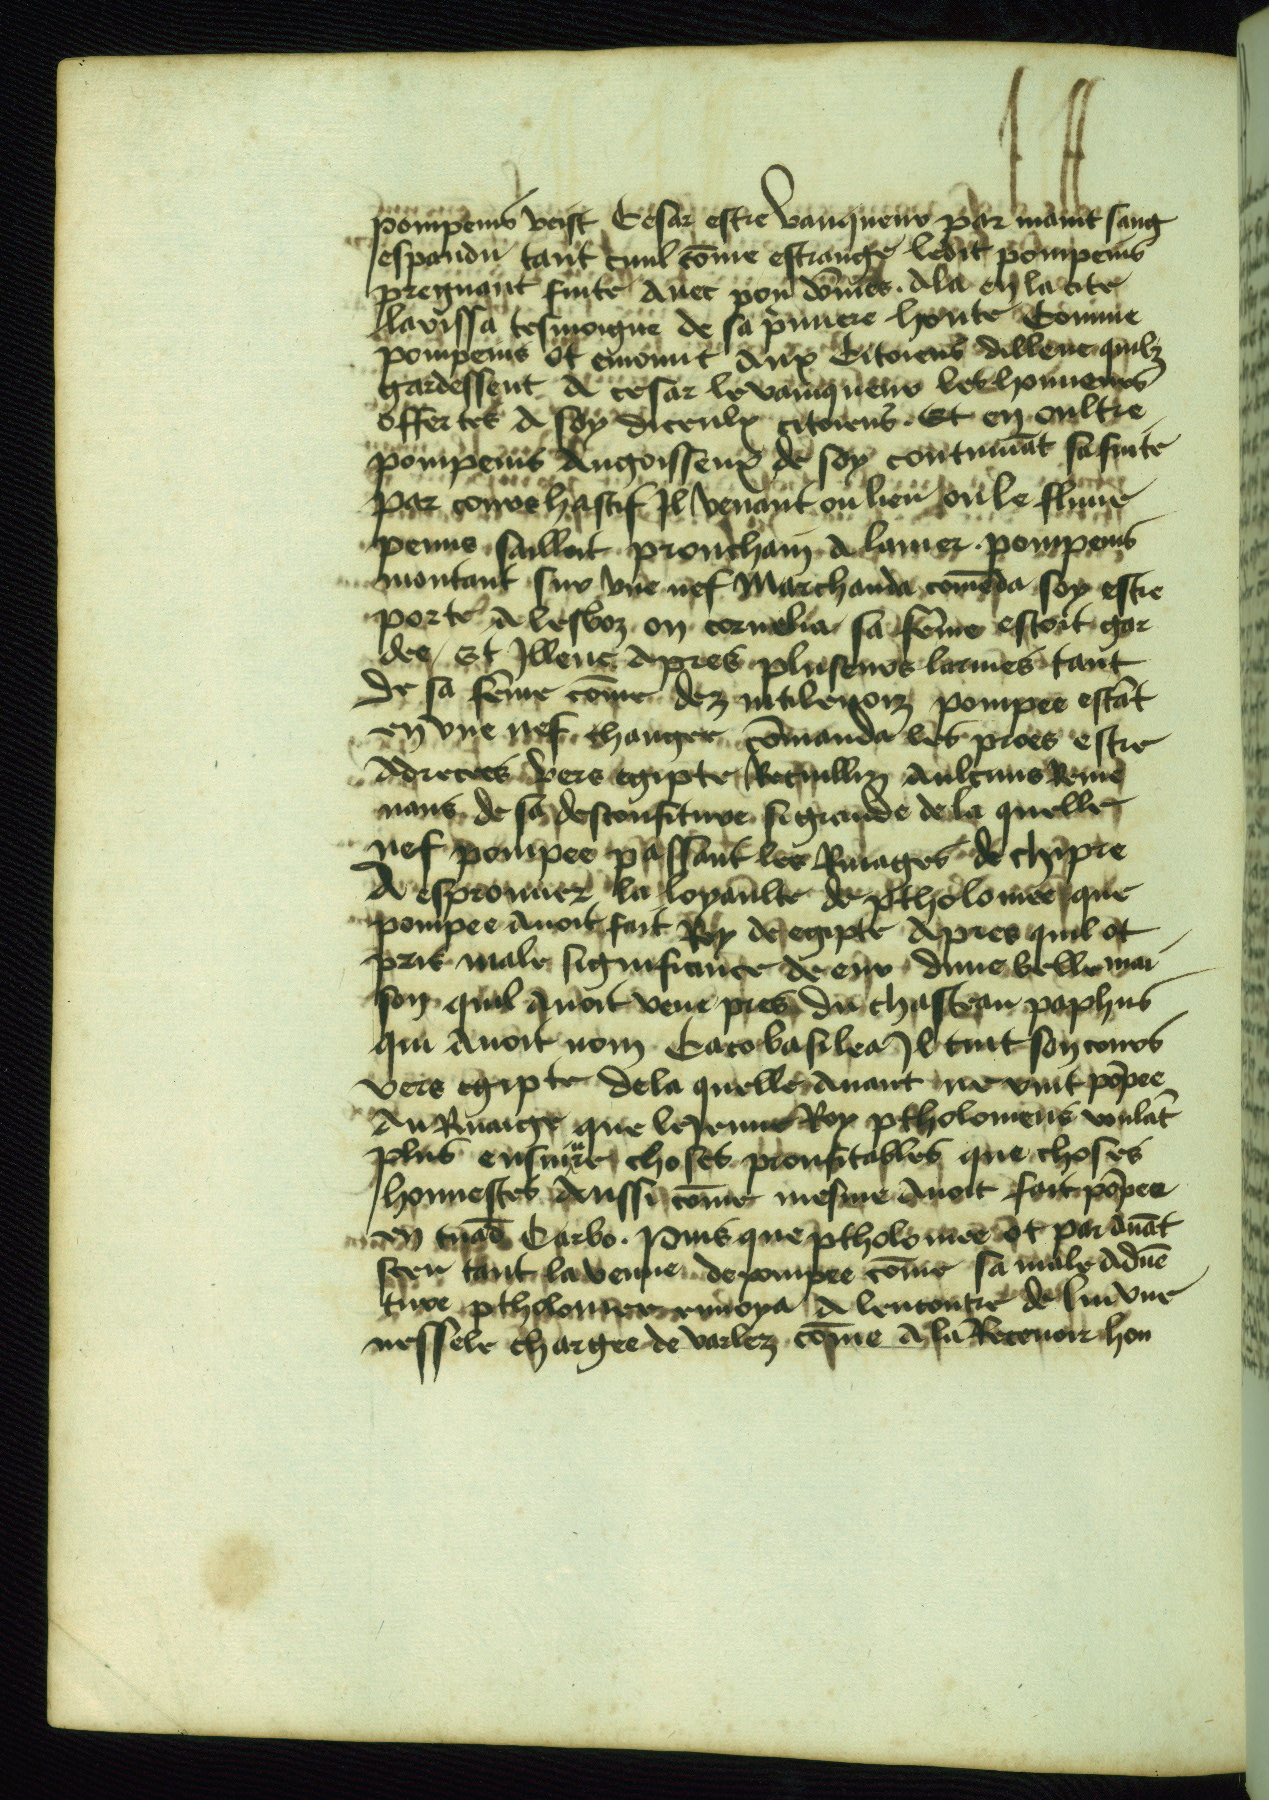 pompeius veist Cesar estre vanqueur par maint sang
espandu tant ciuil cōme estrange ledit pompeius
pregnant fuite auec pou dōmes. Ala en la cite
larissa tesmoigne de sa pmiere honte Comme
pompeius ot emonnt aux Citoiens dilleuc quilz
gardessent a cesar le vainqueur les honneurs
offertes a soy diceulx citoiens. Et en oultre
pompeius Angoisseux de soy continuāt sa fuite
par cours hastif Il venant ou lieu ou le fluue
penus sailloit prouchain a lamer. pompeus
montant sur vne nef Marchanda comēda soy estre
porte a lesboz ou cornelia sa fēme estoit gar
dee / Et Illeuc apres pluseurs larmes tant
de sa fēme cōme dez mtilenoiz pompee estāt
en vne nef changee cōmanda les proes estre
adrecees vers egipte Recuilliz aulcuns Reme
nans de sa desconfiture si grande de la quelle
nef pompee passant les Riuages de chipre
A esprouuer la loyaulte de ptholomee que
pompee auoit fait Roy de egipte Apres quil ot
pris male significance de eur dune belle mai
son quil auoit veue pres du chasteau paphus
qui auoit nom Cacobasilea Il tint son cours
vers egipte dela quelle auant ne vint pōpee
Au Riuaige que le Jeune Roy ptholomeus voulāt
plus ensuiure choses proufitables que choses
honnestes Aussi cōme mesme auoit fait pōpee
en tuād Carbo. Puis que ptholomee ot par auāt
sceu tant la venue de pompee cōme sa male aduē
ture ptholomee enuoya a lencontre de lui vne
nessele chargee de varlez cōme a la Receuoir hon